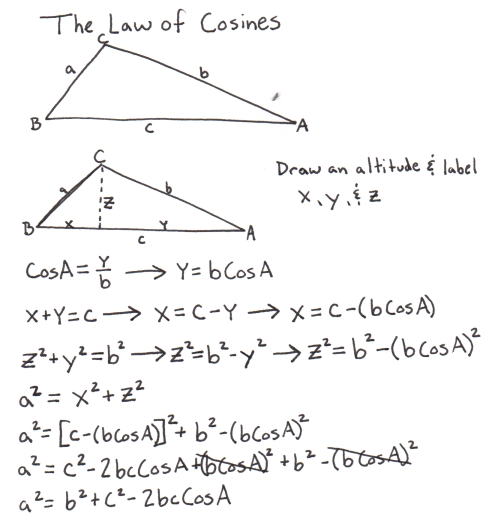 The Law of Cosines
C
a
b
B
c
A
C
a
z
b
B
x
y
c
A
Draw an altitude & label
x, y, & z
CosA = y/b → y = bCosA
x+y=c → x = c-y → x = c-(bCosA)
z²+y²=b² → z²=b²-y² → z²=b²-(bCosA)²
a² = x²+z²
a²=[c-(bCosA)]²+b²-(bCosA)²
a²= c²-2bcCosA+(bCosA)²+b²-(bCosA)²
a²= b²+c²-2bcCosA